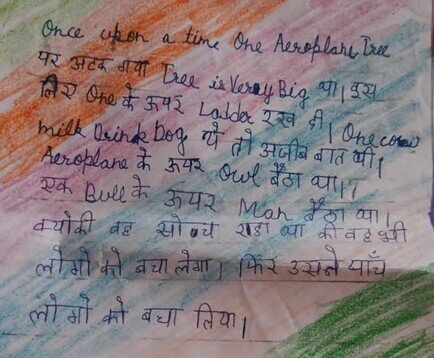 Once upon a time One Aeroplane Tree
पर अटक गया Tree is Very Big था। इस
लिए One के ऊपर Ladder रख दी। One cow
milk Drink Dog ये तो अजीब बात थी।
Aeroplane के ऊपर Owl बैठा था।
एक Bull के ऊपर Man बैठा था।
क्योकी वह सोच रहा था की वह भी
लोगो को बचा लेगा। फिर उसने पाँच
लोगो को बचा लिया।